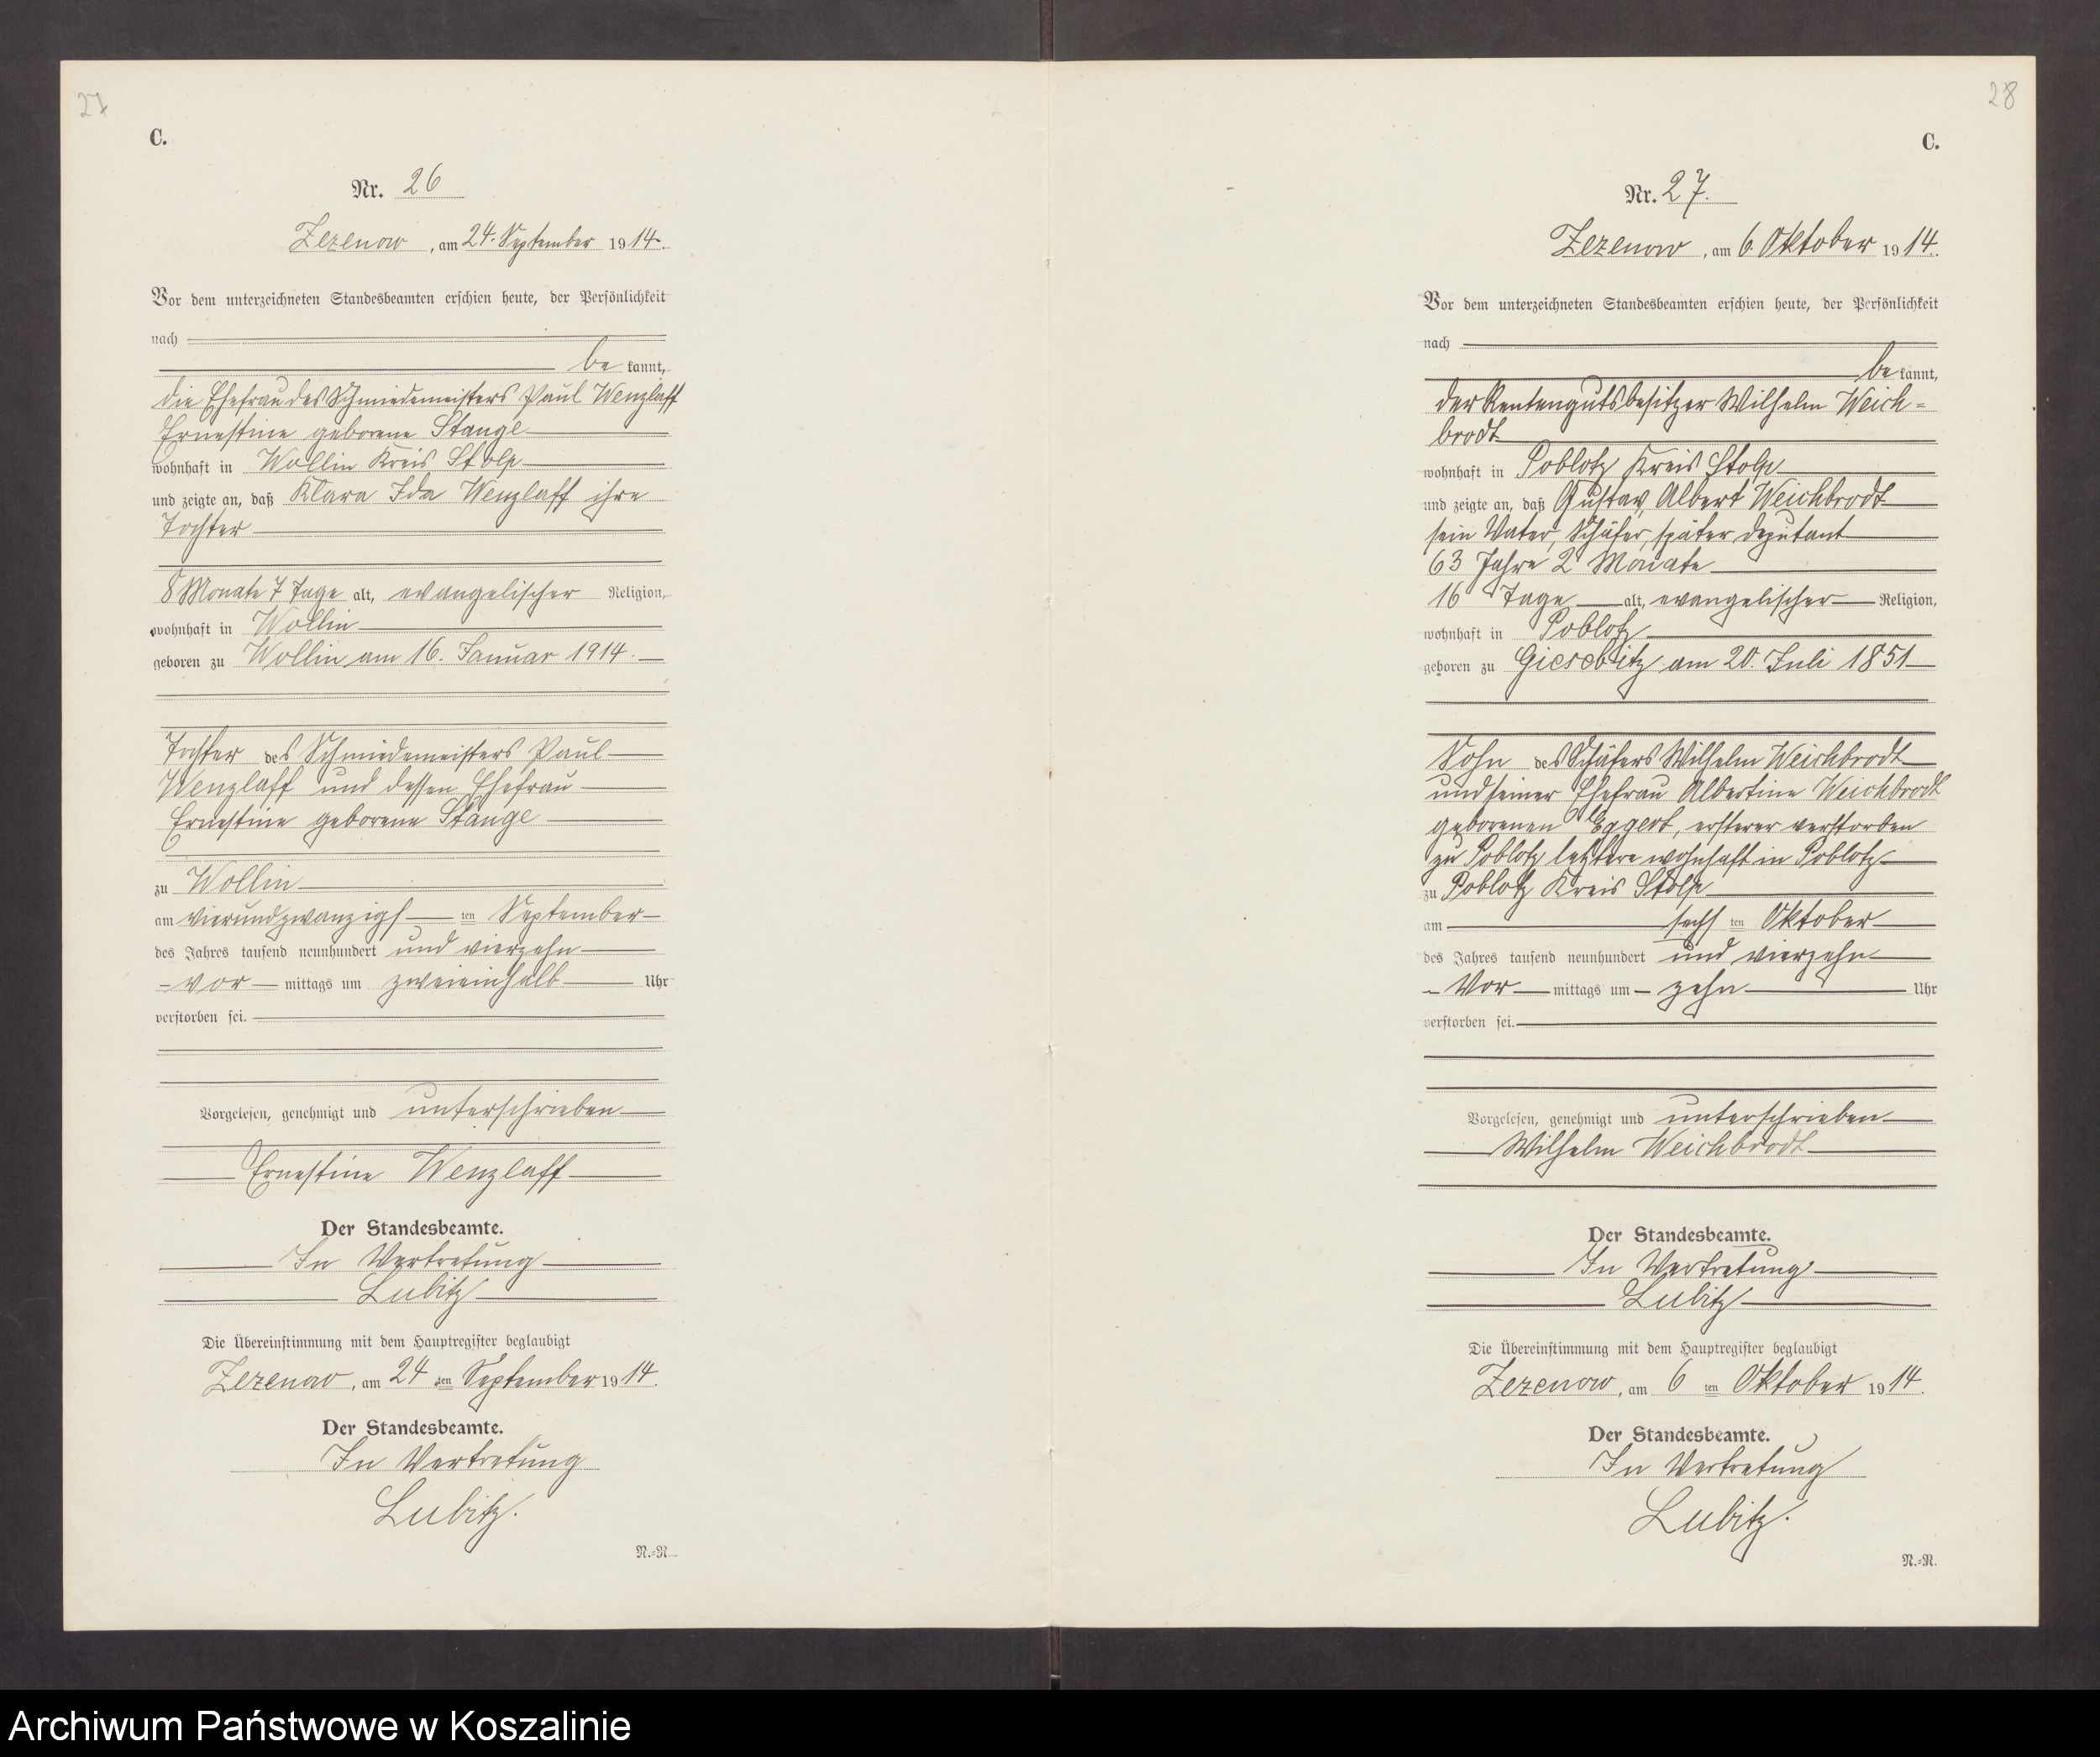 27
C.
Nr. 26
Zezenow, am 24. September 1914.
Vor dem unterzeichneten Standesbeamten erschien heute, der Persönlichkeit
nach
be kannt,
die Ehefrau des Schmiedemeisters Paul Wenzlaff
Ernestine geborene Stange
wohnhaft in Wollin Kreis Stolp
und zeigte an, daß Klara Ida Wenzlaff ihre
Tochter
8 Monate 7 Tage alt, evangelischer Religion,
wohnhaft in Wollin
geboren zu Wollin am 16. Januar 1914.
Tochter des Schmiedemeisters Paul
Wenzlaff und dessen Ehefrau
Ernestine geborene Stange
zu Wollin
am vierundzwanzigs ten September
des Jahres tausend neunhundert und vierzehn
vor mittags um zweieinhalb Uhr
verstorben sei.
Vorgelesen, genehmigt und unterschrieben
Ernestine Wenzlaff
Der Standesbeamte.
In Vertretung
Lubitz
Die Übereinstimmung mit dem Hauptregister beglaubigt
Zezenow, am 24 ten September 1914.
Der Standesbeamte.
In Vertretung
Lubitz.
N.=N.
28
C.
Nr. 27.
Zezenow, am 6. Oktober 1914.
Vor dem unterzeichneten Standesbeamten erschien heute, der Persönlichkeit
nach
be kannt,
der Rentengutsbesitzer Wilhelm Weich=
brodt
wohnhaft in Poblotz Kreis Stolp
und zeigte an, daß Gustav Albert Weichbrodt
sein Vater, Schäfer, später Deputant
63 Jahre 2 Monate
16 Tage alt, evangelischer Religion,
wohnhaft in Poblotz
geboren zu Giesebitz am 20. Juli 1851
Sohn des Schäfers Wilhelm Weichbrodt
und seiner Ehefrau Albertine Weichbrodt
geborenen Eggert, ersterer verstorben
zu Poblotz letztere wohnhaft in Poblotz
zu Poblotz Kreis Stolp
am sechs ten Oktober
des Jahres tausend neunhundert und vierzehn
Vor mittags um zehn Uhr
verstorben sei.
Vorgelesen, genehmigt und unterschrieben
Wilhelm Weichbrodt
Der Standesbeamte.
In Vertretung
Lubitz
Die Übereinstimmung mit dem Hauptregister beglaubigt
Zezenow, am 6 ten Oktober 1914.
Der Standesbeamte.
In Vertretung
Lubitz.
N.=N.
Archiwum Państwowe w Koszalinie